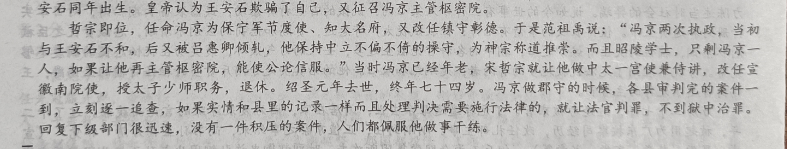 安石同年出生。皇帝认为王安石欺骗了自己，又征召冯京主管枢密院。
哲宗即位，任命冯京为保宁军节度使、知大名府，又改任镇守彰德。于是范祖禹说：“冯京两次执政，当初
与王安石不和，后又被吕惠卿倾轧，他保持中立不偏不倚的操守，为神宗称道推崇。而且昭陵学士，只剩冯京一
人，如果让他再主管枢密院，能使公论信服。”当时冯京已经年老，宋哲宗就让他做中太一宫使兼侍讲，改任宣
徽南院使，授太子少师职务，退休。绍圣元年去世，终年七十四岁。冯京做郡守的时候，各县审判完的案件一
到，立刻逐一追查，如果实情和县里的记录一样而且处理判决需要施行法律的，就让法官判罪，不到狱中治罪。
回复下级部门很迅速，没有一件积压的案件，人们都佩服他做事干练。